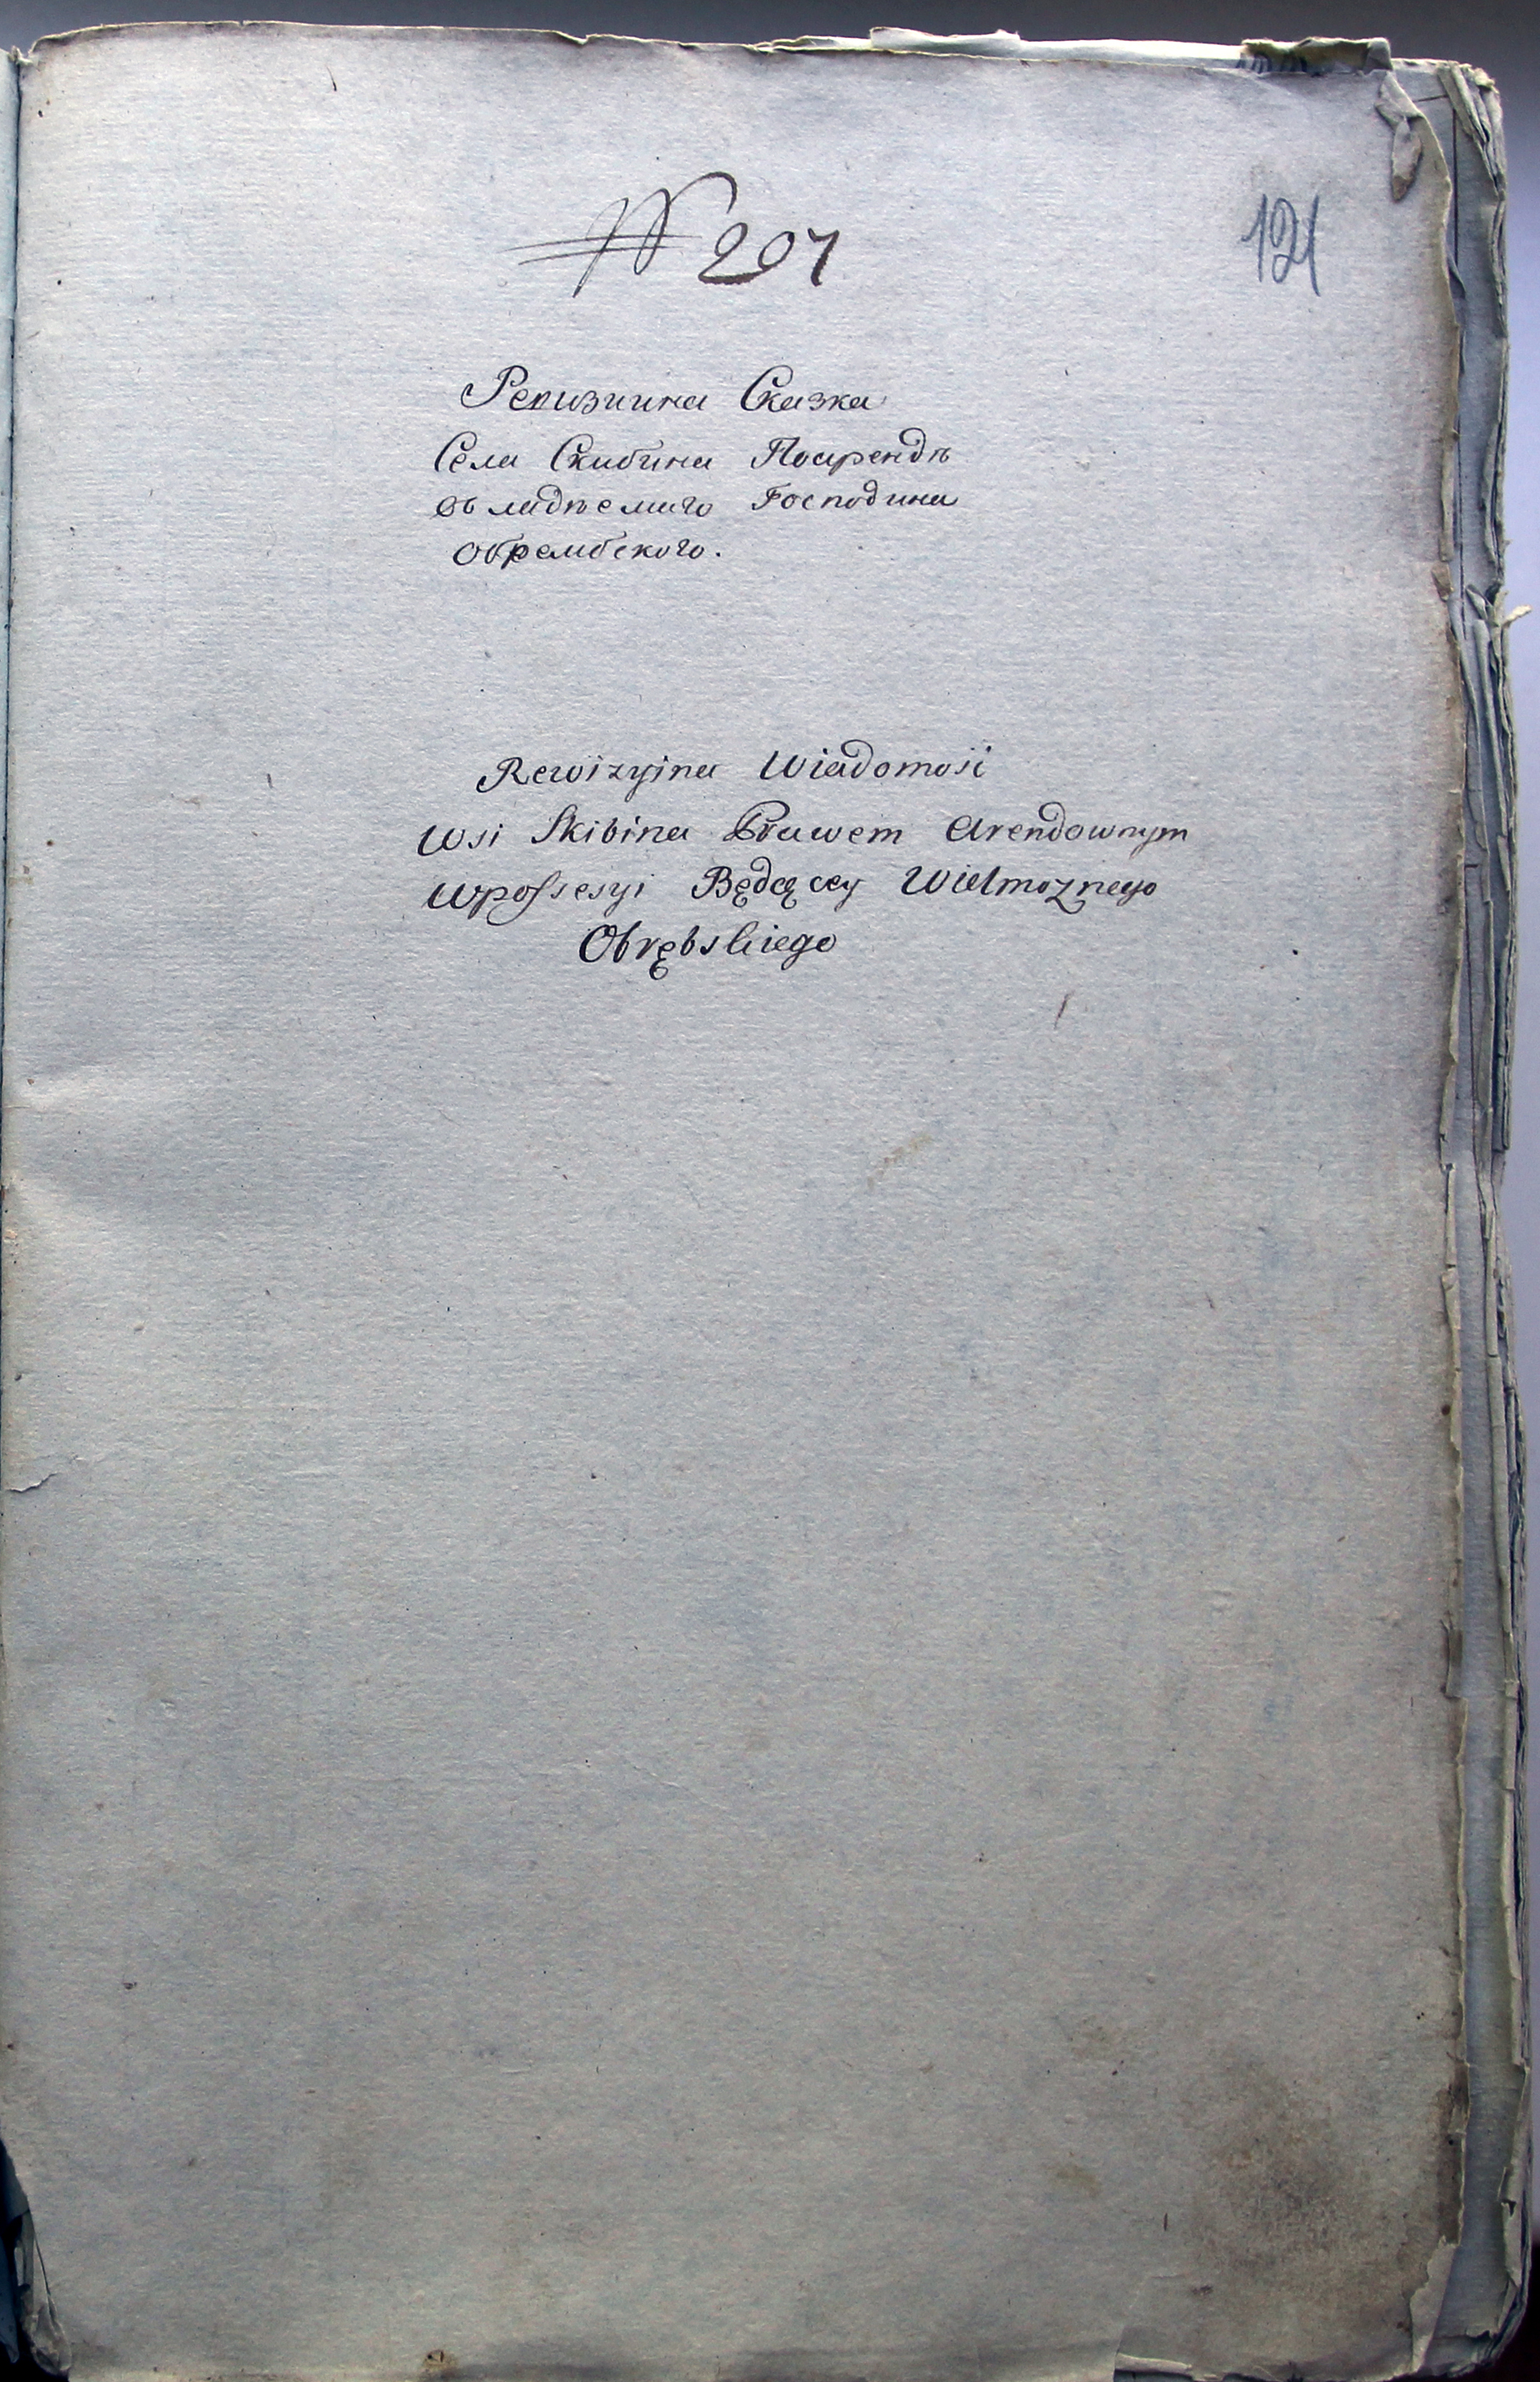 № 207
121
Ревизиина Сказка
Села Скибина Поарендѣ
въ ладѣемаго Господина
Обрембского.
Rewizyina Wiadomość
Wsi Skibina Prawem Arendownym
Wpossesyi Będącey Wielmożnego
Obrębskiego